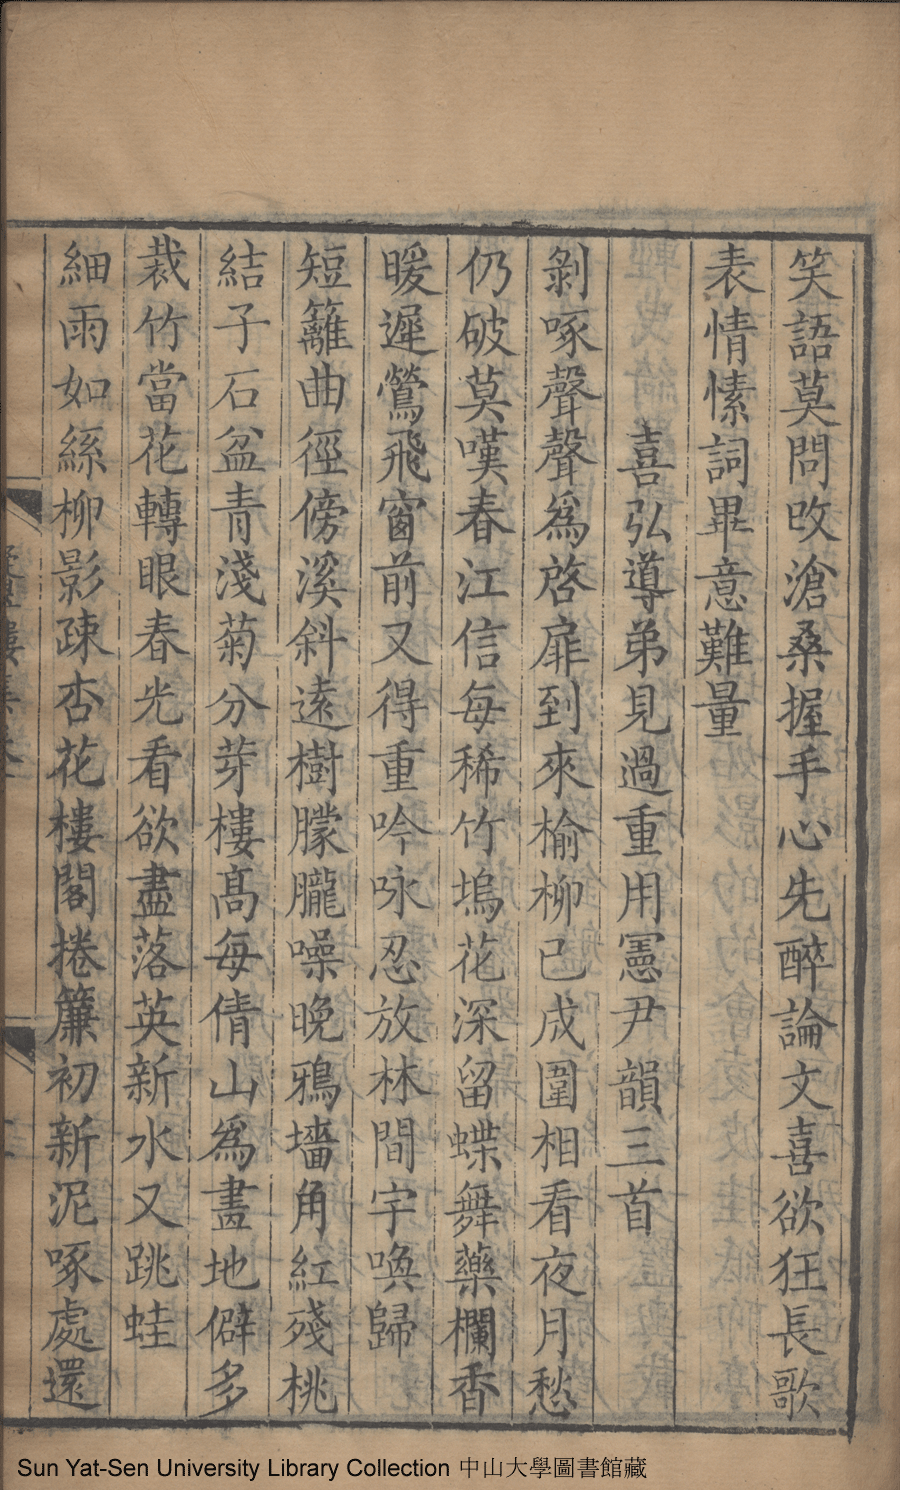 笑語莫問攺滄桑握手心先醉論文喜欲狂長歌
表情愫詞畢意難量
喜弘導弟見過重用憲尹韻三首
剝啄聲聲爲啓扉到來榆柳已成圍相看夜月愁
仍破莫嘆春江信每稀竹塢花深留蝶舞藥欄香
暖遲鶯飛窗前又得重吟咏忍放林間字喚歸
短籬曲徑傍溪斜遠樹朦朧噪晚鴉墻角紅殘桃
結子石盆青淺菊分芽樓髙每倩山爲畫地僻多
裁竹當花轉眼春光看欲盡落英新水又跳蛙
細雨如絲柳影疎杏花樓閣捲簾初新泥啄處還
Sun Yat-Sen University Library Collection 中山大學圖書館藏